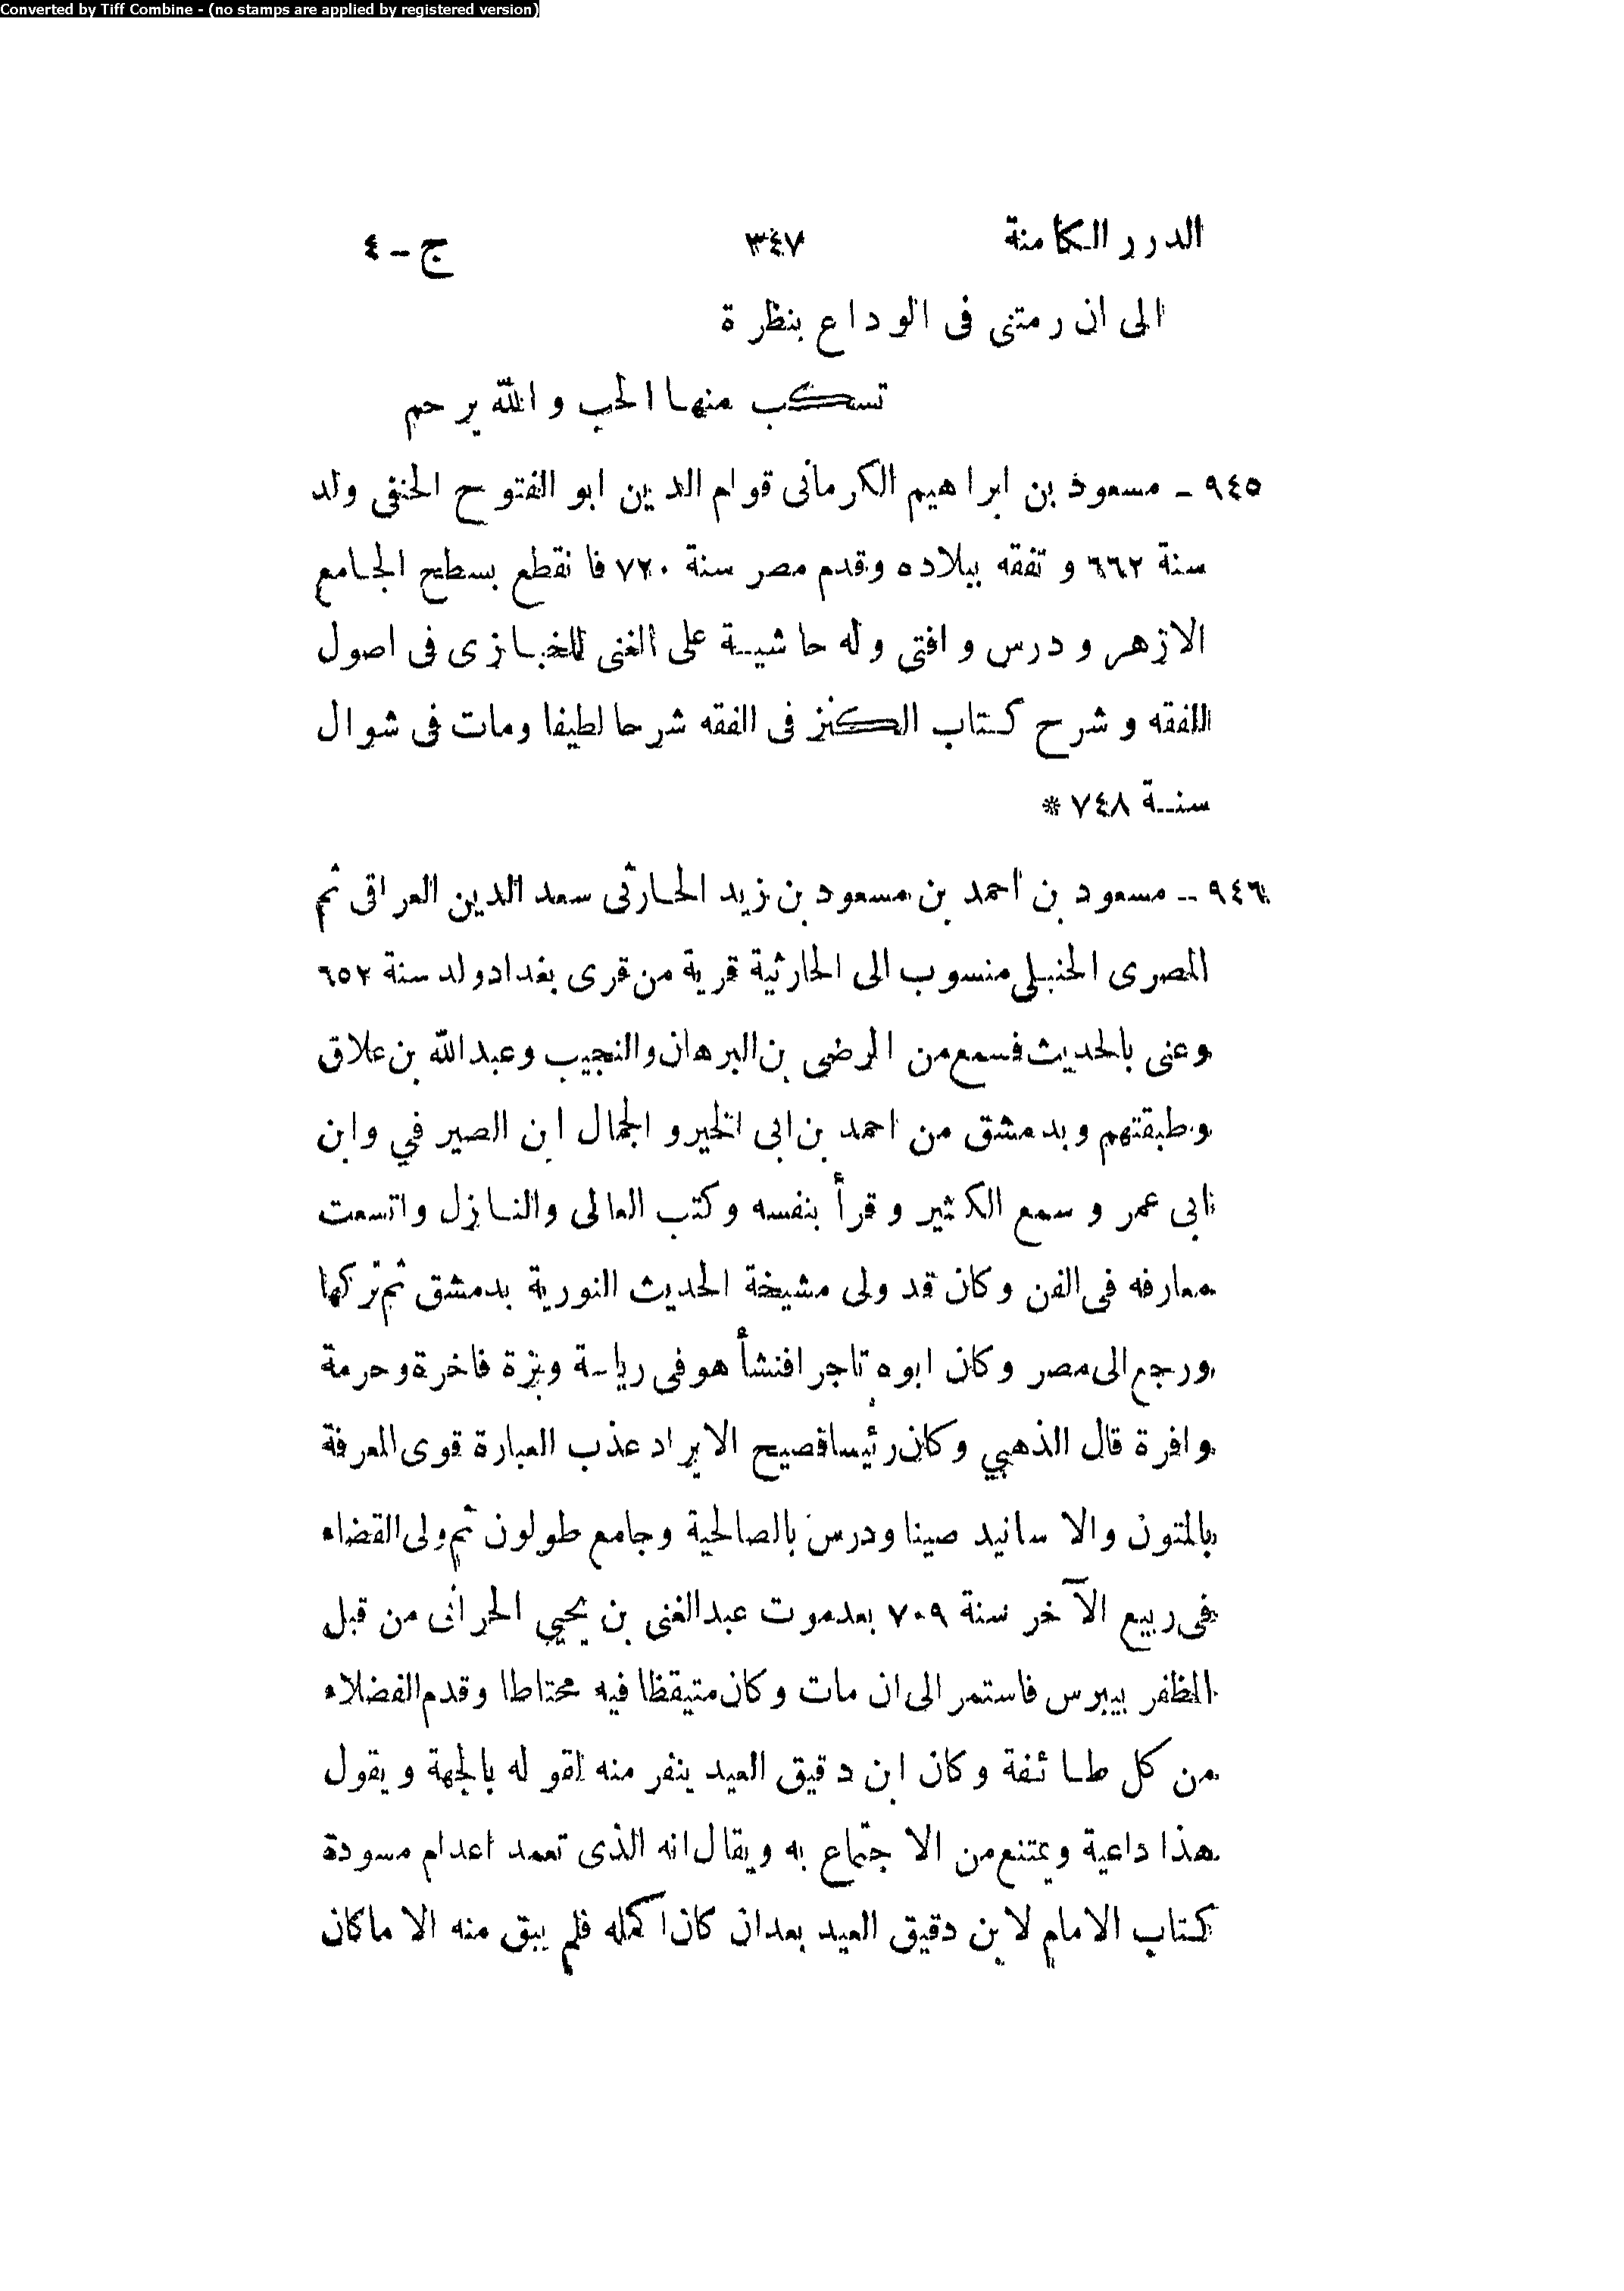 Converted by Tiff Combine - (no stamps are applied by registered version)
الدرر الكامنة ٣٤٧ ج - ٤
الى ان رمتنى فى الوداع بنظرة
تسكب منها الحب والله يرحم
٩٤٥ - مسعود بن ابراهيم الكرمانى قوام الدين ابو الفتوح الحنفى ولد
سنة ٦٦٢ وتفقه ببلاده وقدم مصر سنة ٧٢٠ فانقطع بسطح الجامع
الازهر ودرس وافتى وله حاشية على المغنى للخبازى فى اصول
الفقه وشرح كتاب الكنز فى الفقه شرحا لطيفا ومات فى شوال
سنة ٧٤٨ *
٩٤٦ - مسعود بن احمد بن مسعود بن زيد الحارثى سعد الدين العراقى ثم
المصرى الحنبلى منسوب الى الحارثية قرية من قرى بغداد ولد سنة ٦٥٢
وعنى بالحديث فسمع من الرضى بن البرهان والنجيب وعبد الله بن علاق
وطبقتهم وبدمشق من احمد بن ابى الخير والجمال ابن الصيرفي وابن
ابى عمر وسمع الكثير وقرأ بنفسه وكتب العالى والنازل واتسعت
معارفه فى الفن وكان قد ولى مشيخة الحديث النورية بدمشق ثم تركها
ورجع الى مصر وكان ابوه تاجرا فنشأ هو فى رياسة وبزة فاخرة وحرمة
وافرة قال الذهبي وكان رئيسا فصيح الايراد عذب العبارة قوى المعرفة
بالمتون والاسانيد صينا ودرس بالصالحية وجامع طولون ثم ولى القضاء
فى ربيع الآخر سنة ٧٠٩ بعد موت عبد الغنى بن يحيي الحرانى من قبل
المظفر بيبرس فاستمر الى ان مات وكان متيقظا فيه محتاطا وقدم الفضلاء
من كل طائفة وكان ابن دقيق العيد ينفر منه لقوله بالجهة ويقول
هذا داعية ويمتنع من الاجتماع به ويقال انه الذى تعمد اعدام مسودة
كتاب الامام لابن دقيق العيد بعد ان كان اكمله فلم يبق منه الا ما كان